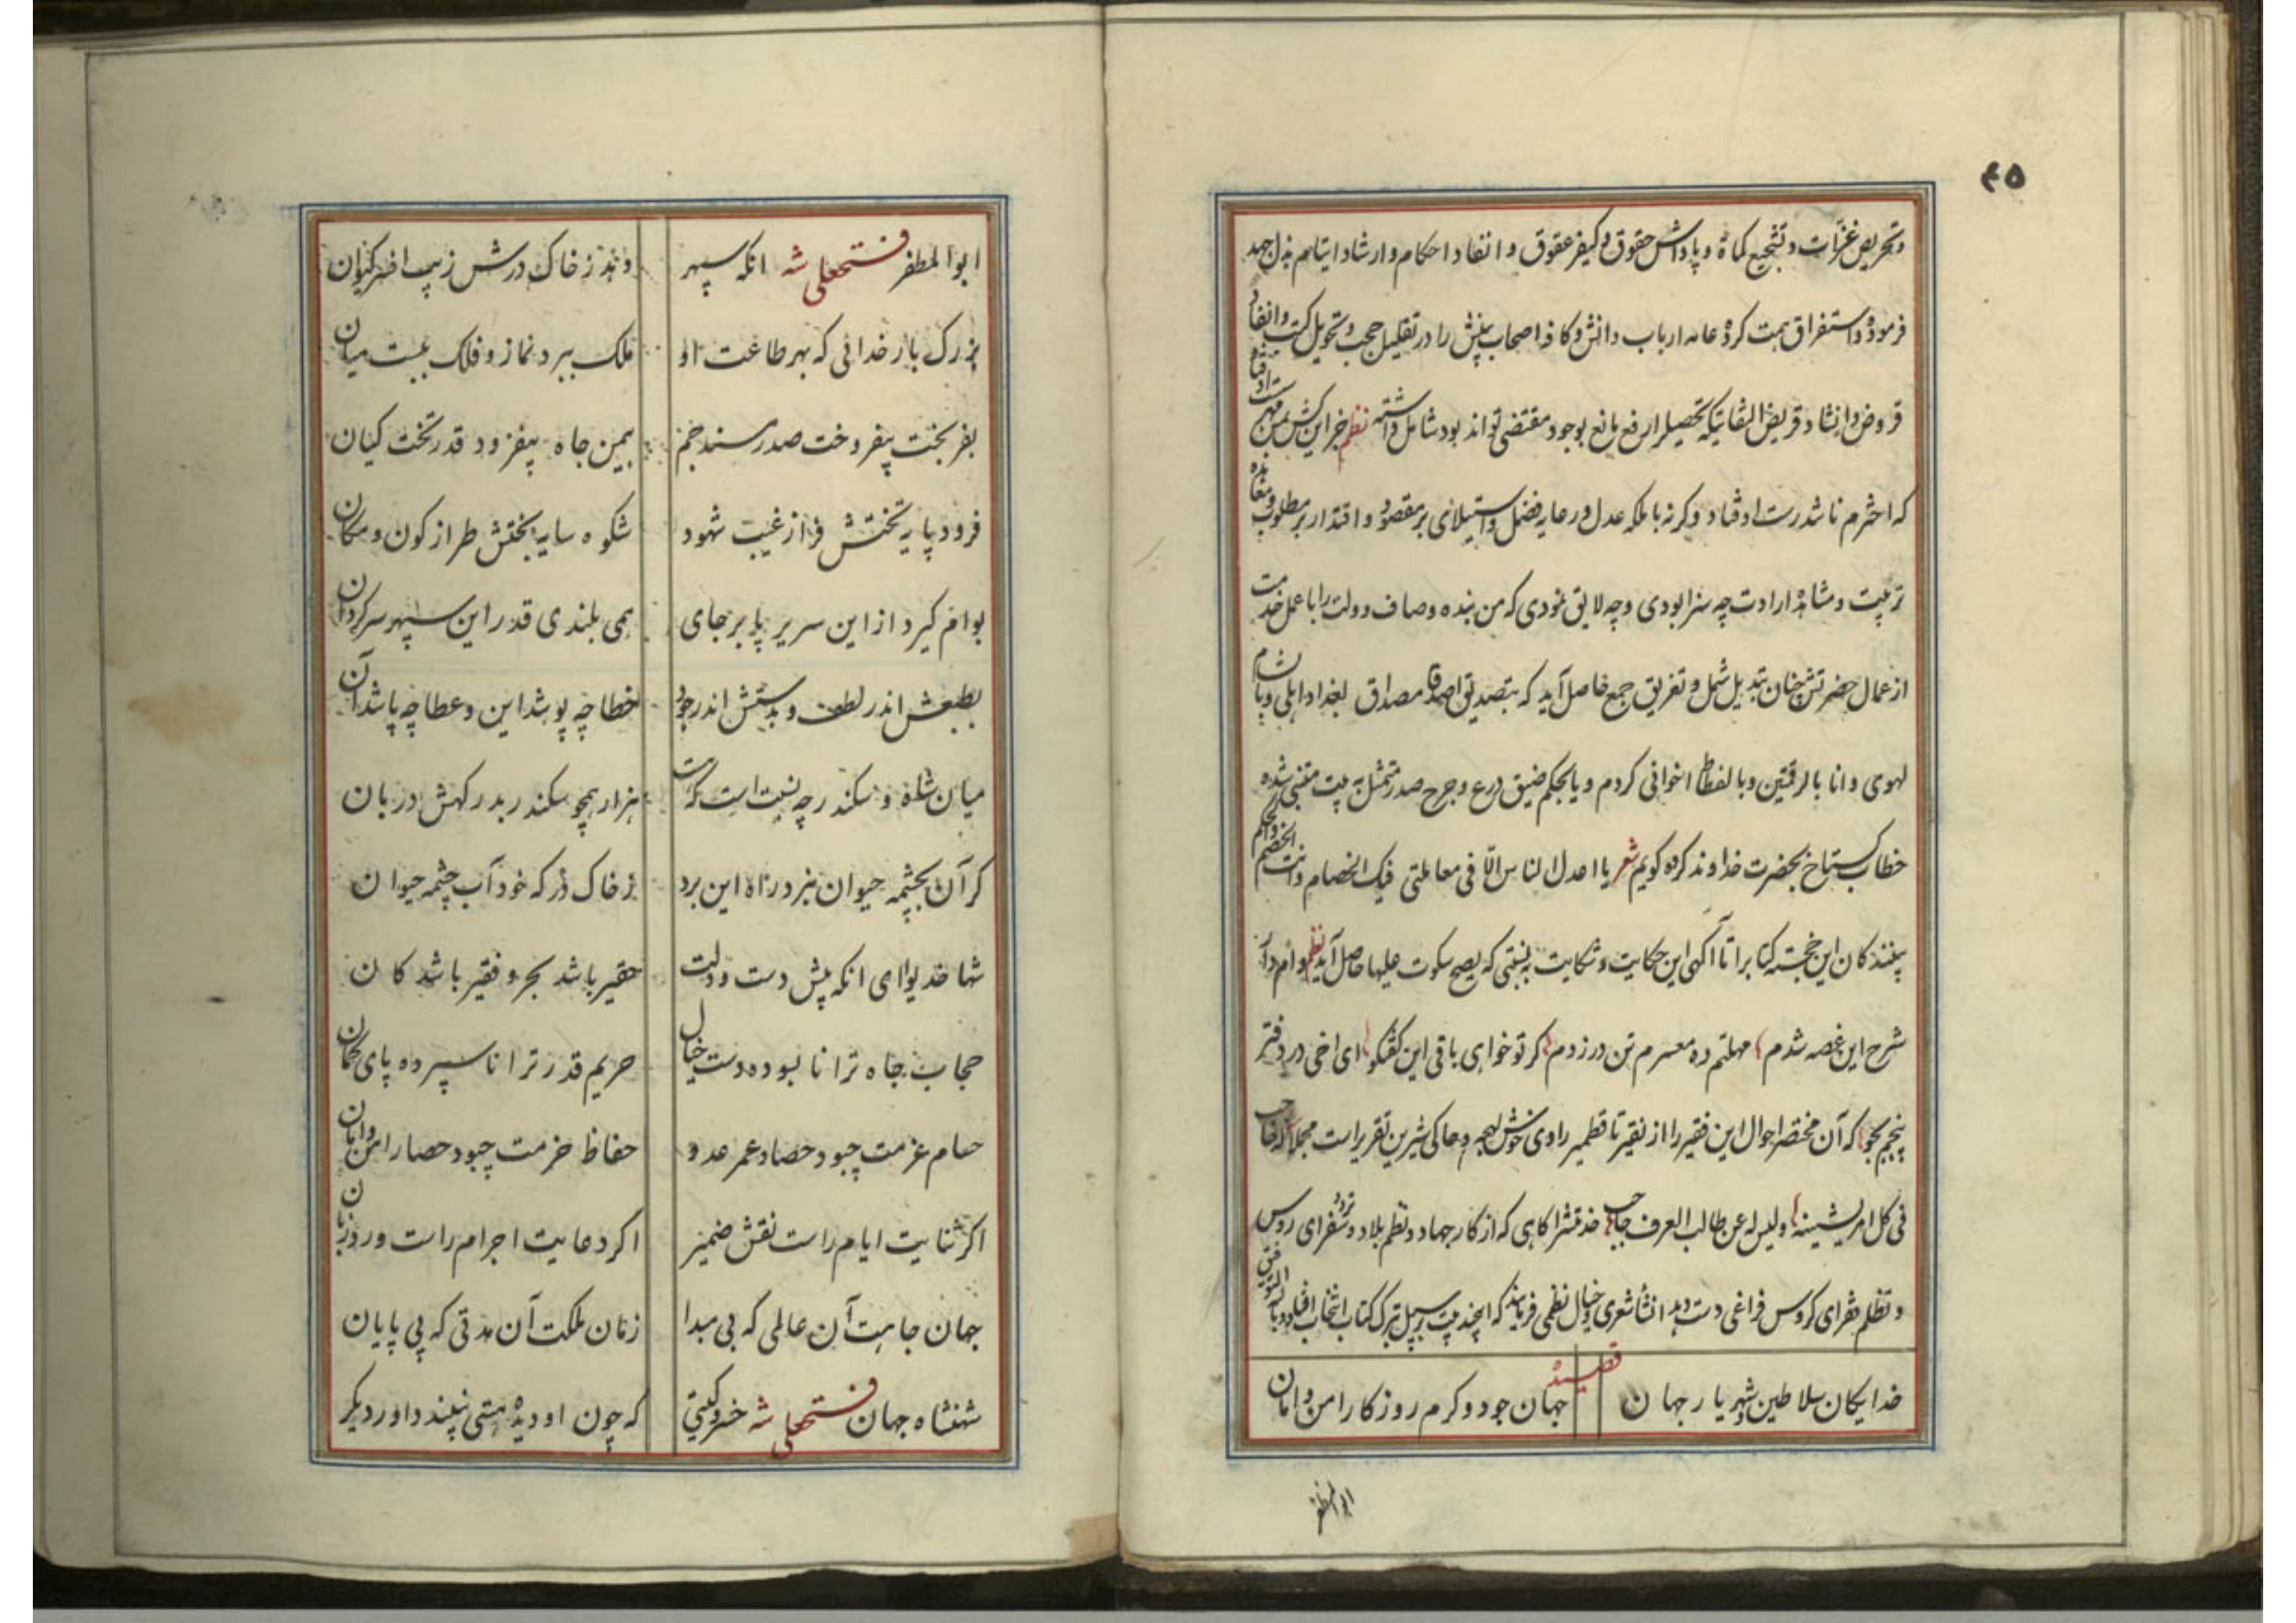 ۴۵
و تحریص غزات و تشجیع کماة و پاداش حقوق و کیفر عقوق و انفاد احکام و ارشاد ایتام بذل جهد
فرموده و استفراق همت کرده عامه ارباب دانش و کافه اصحاب بینش را در تقلیل حجب و تحویل کتب و انفاد
قروض و انشاد قریض التفاتیکه تحصیل را رفع مانع بوجود مقتضی تواند بود شامل داشته نظم خر این کش من
که اخترم ناشد رست اوفتاد وگرنه با ملکه عدل و رعایه فضل و استیلای بر مقصود و اقتدار بر مطلوب
تربیت و مشاهده ارادت چه سزا بودی و چه لایق نمودی که من بنده وصاف دولت را با عمل خدمت
از عمال حضرتش چنان تبدیل شمل و تفریق جمع حاصل آید که بتصدیق مصداق بغداد اهلی و بالشام
لهوی و انا بالرقتین و بالفطاط اخوانی کردم و یا بحکم ضیق ذرع و جرح صدر متمثل به بیت متنبی شده
خطاب گستاخ بحضرت خداوند کرده گویم شعر یا اعدل الناس الا فی معاملتی فیک الخصام و انت الخصم والحکم
بینندکان این خجسته کتابرا تا آگهی این حکایت و شکایت به نسبتی که یصح سکوت علیها حاصل آید نظم وام دار
شرح این غصه شدم مهلتم ده معسرم تن در زدم گر تو خواهی باقی این گفتگو ای اخی در دفتر
پنجم بجو که آن مختصر احوال این فقیر را از نقیر تا قطمیر راوی خوش لهجه و حاکی شیرین تقریر است مجملا له حاجب
فی کل امر یشینه ولیس له عن طالب العرف حاجب خدمتش را گاهی که از کار جهاد و نظم بلاد و تردد سفرای روس
و تظلم فقرای کروس فراغی دست دهد انشأ شعری و خیال نظمی فرمایند که اینچند بیت بر سبیل تبرک کتاب انتخاب افتاد و بالله التوفیق
قصیده
خدایکان سلاطین و شهریار جهان جهان جود و کرم روزکار امن و امان
ابوالمظفر
ابوالمظفر فتحعلی شه انکه سپهر دهد ز خاک درش زیب افسر کیوان
بزرک بار خدائی که بهر طاعت او ملک ببرد نماز و فلک ببست میان
بفر بخت بیفروخت صدر مسند جم بیمن جاه بیفزود قدر تخت کیان
فرود پایه تختش فراز غیب شهود شکوه سایه بختش طراز کون و مکان
بوام کیرد از این سریر پا بر جای همی بلندی قدر این سپهر سرکردان
بطبعش اندر لطف و بدستش اندر جود خطا چه پوشد این و عطا چه پاشد آن
میان شاه و سکندر چه نسبت است که هست هزار همچو سکندر بدرکهش دربان
کر آن بچشمه حیوان نبرد راه این برد ز خاک درکه خود آب چشمه حیوان
شها خدیوا ای انکه پیش دست و دلت حقیر باشد بحر و فقیر باشد کان
حجاب جاه ترا نابسوده دست خیال حریم قدر ترا ناسپرده پای کمان
حسام عزمت چبود حصاد عمر عدو حفاظ حزمت چبود حصار امن و امان
اکر ثنایت ایام راست نقش ضمیر اکر دعایت اجرام راست ورد زبان
جهان جاهت آن عالمی که بی مبدا زمان ملکت آن مدتی که بی پایان
شهنشاه جهان فتحعلی شه خسرو کیتی که چون او دیده هستی نبیند داور دیکر